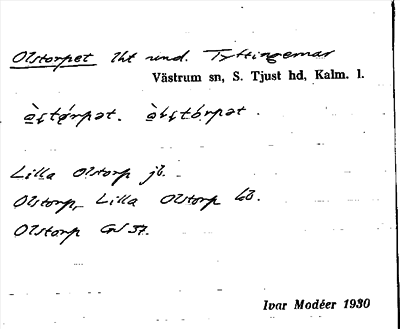 Olstorpet lht und. Tyttingemar
Västrum sn, S. Tjust hd, Kalm. l.
Lilla Olstorp jb.
Olstorp, Lilla Olstorp kb.
Olstorp GS 37.
Ivar Modéer 1930